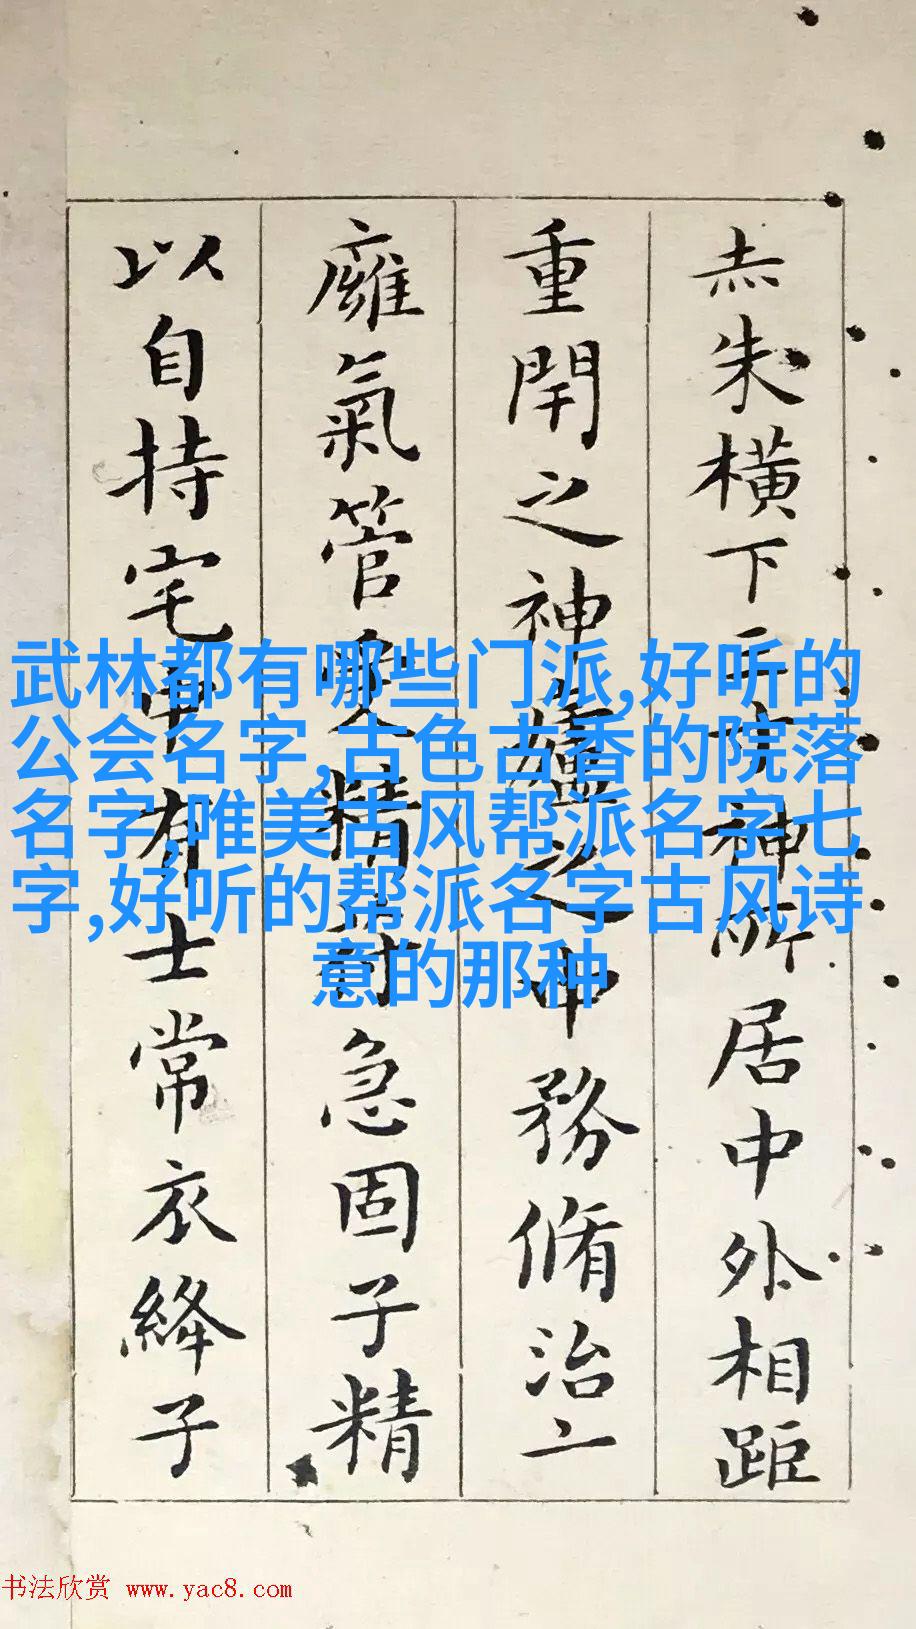 武林都有哪些门派,好听的
公会名字,古色古香的院落
名字,唯美古风帮派名字七
字,好听的帮派名字古风诗
意的那种
重閈之神
廱氣管
急固子精
以自持宅
士常衣絳子
朱橫下
居中外相距
務脩治二
书法欣赏 www.yac8.com